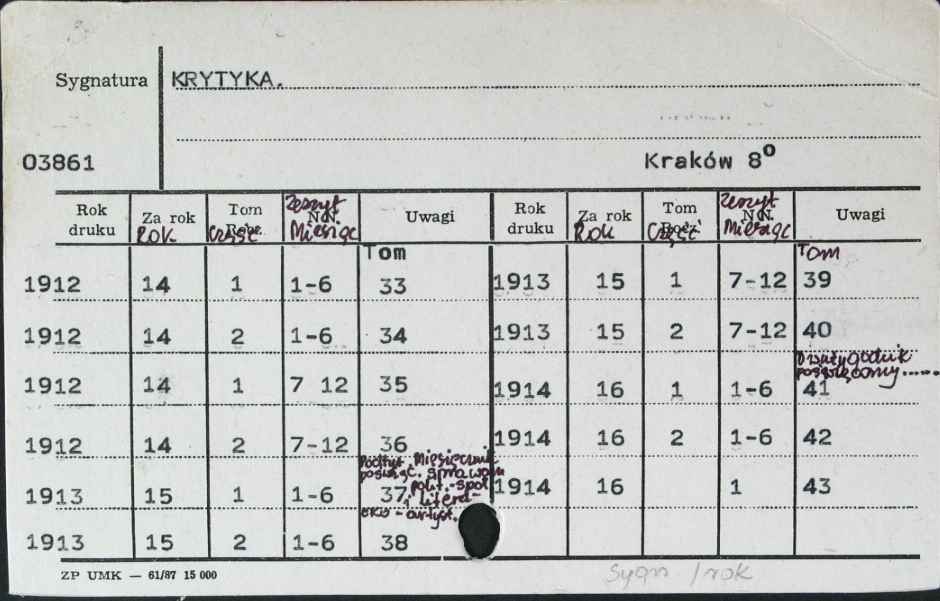 Sygnatura KRYTYKA.
03861 Kraków 8°
Rok druku Za rok Rok. Tom Część Zeszyt NN. Miesiąc Uwagi Rok druku Za rok Rok Tom Część Zeszyt NN. Miesiąc Uwagi
Tom Tom
1912 14 1 1-6 33 1913 15 1 7-12 39
1912 14 2 1-6 34 1913 15 2 7-12 40
Dwutygodnik
poświęcony......
1912 14 1 7 12 35 1914 16 1 1-6 41
1912 14 2 7-12 36 1914 16 2 1-6 42
Podtyt. Miesięcznik
poświęc. sprawom
polit.-społ
1913 15 1 1-6 37 i litera- 1914 16 1 43
cko-artyst.
1913 15 2 1-6 38
ZP UMK — 61/87 15 000
Sygn /rok